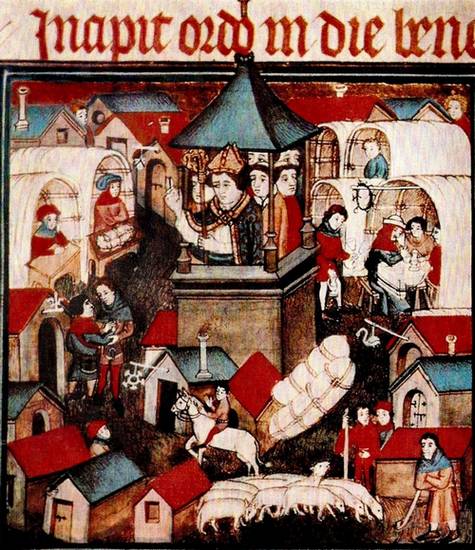 Incipit ordo in die